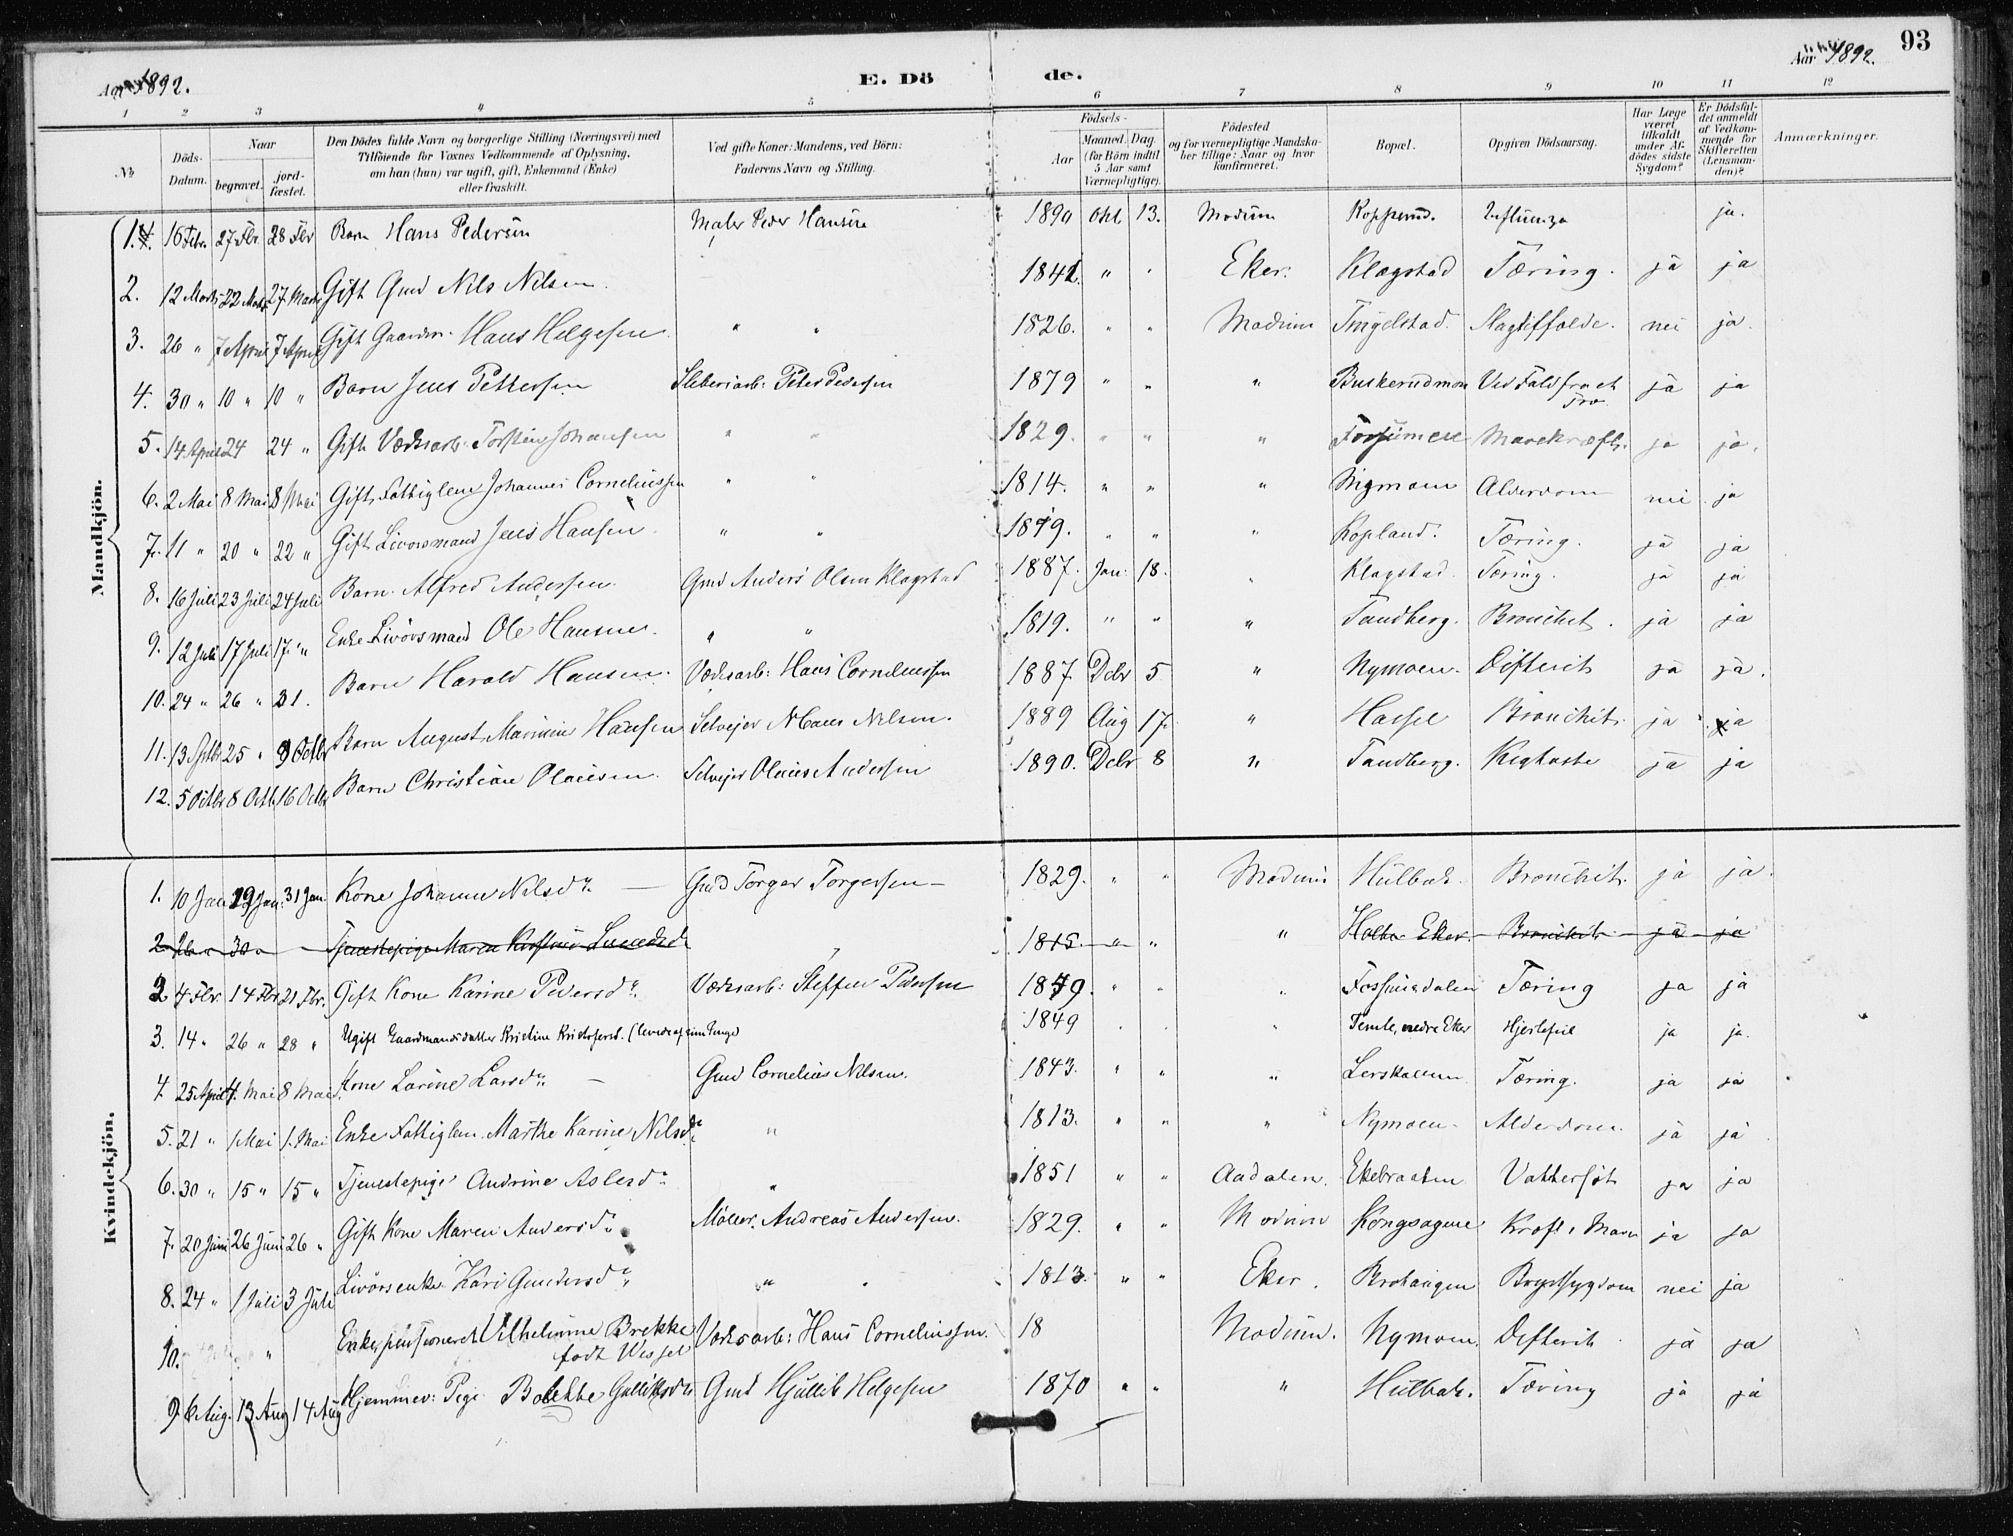 93
Aar 1892. E. Dö de. Aar 1892.
1 2 3 4 5 6 7 8 9 10 11 12
No. Döds-Datum. Naar begravet. jord-fæstet. Den Dödes fulde Navn og borgerlige Stilling (Næringsvei) med Tilföiende for Voxnes Vedkommende af Oplysning, om han (hun) var ugift, gift, Enkemand (Enke) eller fraskilt. Ved gifte Koner: Mandens, ved Börn: Faderens Navn og Stilling. Födsels- Aar Maaned. Dag. (for Börn indtil 5 Aar samt Værnepligtige). Födested og for værnepligtige Mandskaber tillige: Naar og hvor konfirmeret. Bopæl. Opgiven Dödsaarsag. Har Læge været tilkaldt under Afdödes sidste Sygdom? Er Dödsfaldet anmeldt af Vedkommende for Skifteretten (Lensmanden)? Anmærkninger.
Mandkjön.
1. 16 Febr. 27 Fbr. 28 Fbr Barn Hans Pedersen Maler Peder Hansen 1890 Okt. 13. Modum Kopperud. Influenza ja.
2. 12 Marts 22 Marts 27 Marts Gift Gmd Nils Nilsen. 1841. " " Eker. Klagstad Tæring. ja ja
3. 26 " 7 April 7 April Gift Gaardm. Hans Helgesen " " 1826. " " Modum Tingelstad. Slagtilfælde. nei ja.
4. 30 " 10 " 10 " Barn Jens Pettersen Sliberiarb: Peter Pedersen 1879 " " " Buskerudmoen Ved Fald fra et Træ. ja ja
5. 14 April 24 24 " Gift Værksarb. Torsten Johansen " " 1829. " " " Fossumeie Mavekræft. ja ja.
6. 2 Mai 8 Mai 8 Mai Gift Fattiglem Johannes Corneliussen " " 1814. " " " Nymoen Alderdom nei ja
7. 11 " 20 " 22 " Gift Livörsmand Jens Hansen. " " 1819. " " " Kopland. Tæring. ja ja
8. 16 Juli 23 Juli 24 Juli Barn Alfred Andersen. Gmd Anders Olsen Klagstad 1887. Jan. 18. " Klagstad. Tæring. ja ja
9. 12 Juli 17 Juli 17 " Enke Livörsmand Ole Hansen. " " 1819. " " " Tandberg. Bronchit. ja ja
10. 24 " 26 " 31. Barn Harald Hansen. Værksarb: Hans Corneliussen 1887. Debr 5 " Nymoen. Difterit ja ja.
11. 13 Septbr 25 " 9 Octbr Barn August Marinius Hansen Selveier Hans Nilsen. 1889 Aug 17. " Hassel Bronchit. ja ja
12. 5 Octbr 8 Octb 16 Octbr Barn Christian Olausen. Selveier Olaus Andersen 1890. Debr 8 " Tandberg. Kighoste ja ja
Kvindekjön.
1. 10 Jan 29 Jan. 31 Jan. Kone Johanne Nilsdr. — Gmd Torger Torgersen — 1829. " " Modum Hulbak. Bronchit. ja ja.
2 26 " 30 " Tjenestepige Maren 1815. " " " Eker. Bronchit ja ja
2 4 Fbr. 14 Fbr 21 Fbr. Gift Kone Karine Pedersdr. Værksarb: Steffen Pedersen 1849. " " " Fossumdalen Tæring ja ja
3. 14 " 26 " 28 " Ugift Gaardmandsdatter Kristine Kristofersd. (levede af sine Penge) 1849 " " " Temte, nedre Eker Hjertefeil ja ja.
4. 25 April 1. Mai 8 Mai. Kone Larine Larsdr. — Gmd Cornelius Nilsen. 1843. " " " Lerskallen Tæring. ja ja
5. 21 " 1 Mai 1. Mai Enke Fattiglem. Marthe Karine Nilsdr. " 1813. " " " Nymoen. Alderdom. ja ja
6. 30 " 15 " 15 " Tjenestepige Andrine Aslesdr. " 1851 " " Aadalen. Ekebraaten Vattersot ja ja
7. 20 Juni 26 Juni 26 " Gift Kone Maren Andersdr. Möller. Andreas Andersen. 1829. " " Modum Kongsagene Kræft i Maven ja ja
8. 24 " 1 Juli 3 Juli Livörsenke Kari Gundersdr. " " 1813. " " Eker. Brohaugen Brystsygdom nei ja
10. " Enke, pensioneret Vilhelmine Brekke Værksarb: Hans Corneliussen. 18 Modum. Nymoen. Difterit ja ja
födt Wessel
9. 6 Aug. 13 Aug 14 Aug Hjemmev: Pige Bolette Gulliksdr. Gmd Gullik Helgesen 1870 " " " Hulbak. Tæring ja ja